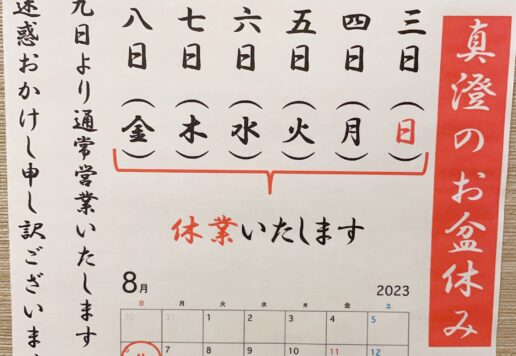 真澄のお盆休み
三日(日)
四日(月)
五日(火)
六日(水)
七日(木)
八日(金)
休業いたします
九日より通常営業いたします
迷惑おかけし申し訳ございま
8月 2023
日 月 火 水 木 金 土
30 31 1 2 3 4 5
6 7 8 9 10 11 12